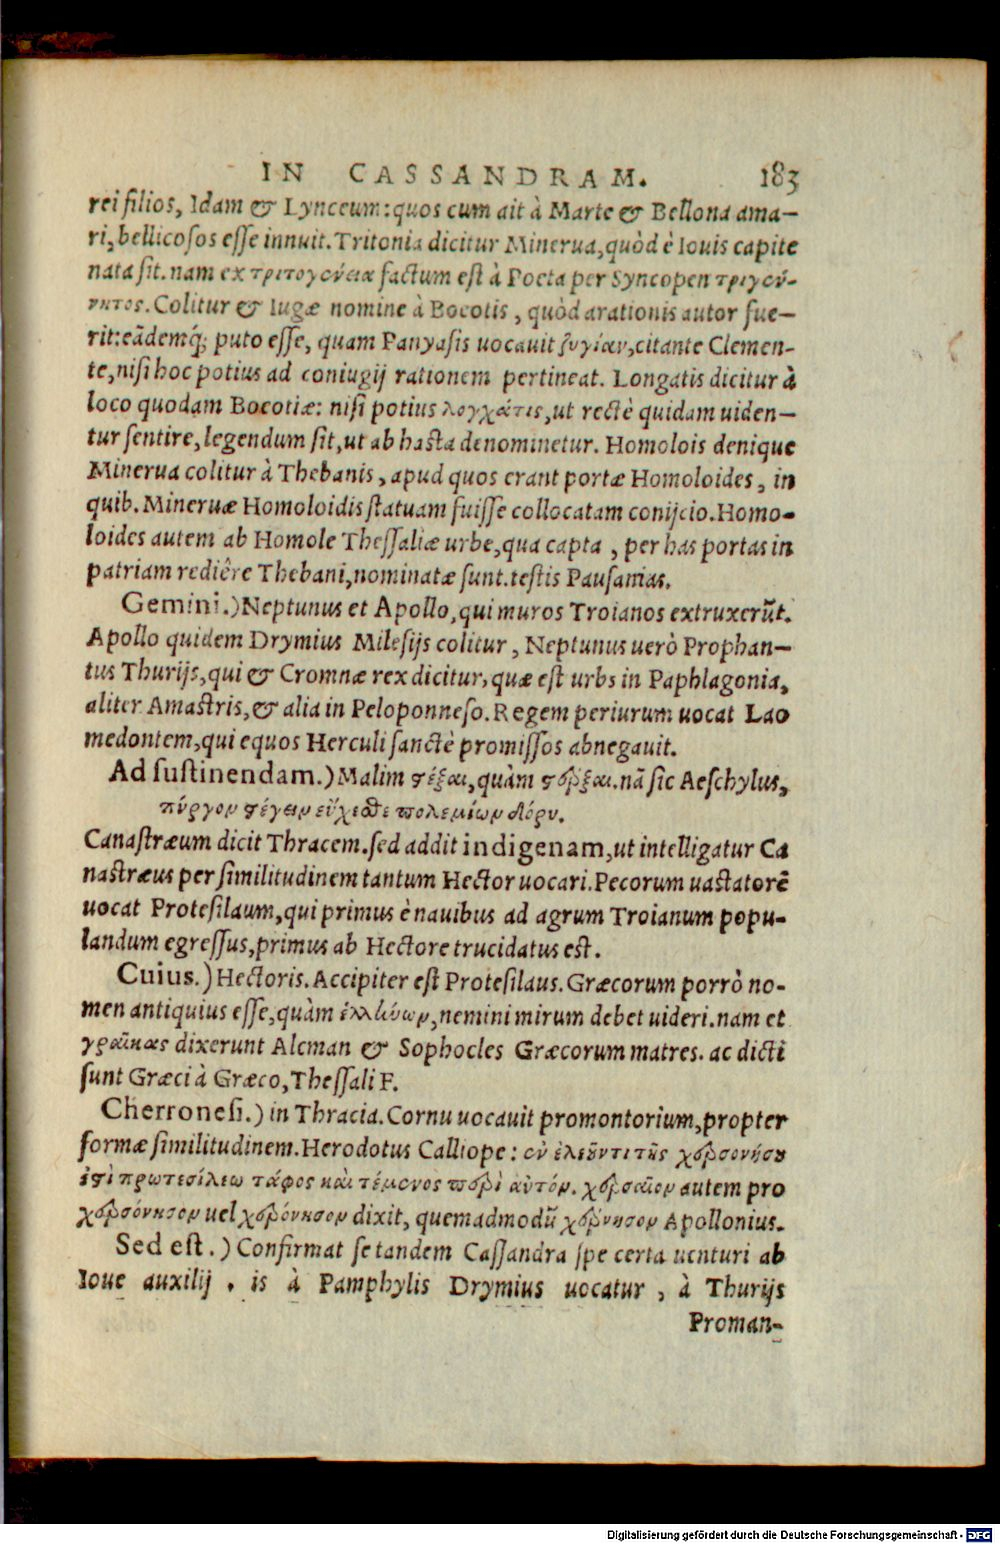 IN CASSANDRAM. 183
rei filios, Idam & Lynceum: quos cum ait à Marte & Bellona ama-
ri, bellicosos esse innuit. Tritonia dicitur Minerua, quòd è Iouis capite
nata sit. nam ex τριτογένεια factum est à Poeta per Syncopen τριγέν-
νητος. Colitur & Iugæ nomine à Boeotis, quòd arationis autor fue-
rit: eãdemq́; puto esse, quam Panyasis uocauit ζυγίαν, citante Clemen-
te, nisi hoc potius ad coniugij rationem pertineat. Longatis dicitur à
loco quodam Boeotiæ: nisi potius λογχάτις, ut rectè quidam uiden-
tur sentire, legendum sit, ut ab hasta denominetur. Homolois denique
Minerua colitur à Thebanis, apud quos erant portæ Homoloides, in
quib. Mineruæ Homoloidis statuam fuisse collocatam conijcio. Homo-
loides autem ab Homole Thessaliæ urbe, qua capta, per has portas in
patriam rediêre Thebani, nominatæ sunt. testis Pausanias.
Gemini.) Neptunus et Apollo, qui muros Troianos extruxerũt.
Apollo quidem Drymius Milesijs colitur, Neptunus uerò Prophan-
tus Thurijs, qui & Cromnæ rex dicitur, quæ est urbs in Paphlagonia,
aliter Amastris, & alia in Peloponneso. Regem periurum uocat Lao
medontem, qui equos Herculi sanctè promissos abnegauit.
Ad sustinendam.) Malim στέξαι, quàm στέρξαι. nã sic Aeschylus,
πύργον στέγειν εὔχεσθε πολεμίων δόρυ.
Canastræum dicit Thracem. sed addit indigenam, ut intelligatur Ca
nastræus per similitudinem tantum Hector uocari. Pecorum uastatorẽ
uocat Protesilaum, qui primus è nauibus ad agrum Troianum popu-
landum egressus, primus ab Hectore trucidatus est.
Cuius.) Hectoris. Accipiter est Protesilaus. Græcorum porrò no-
men antiquius esse, quàm ἑλλήνων, nemini mirum debet uideri. nam et
γραῖκας dixerunt Alcman & Sophocles Græcorum matres. ac dicti
sunt Græci à Græco, Thessali F.
Cherronesi.) in Thracia. Cornu uocauit promontorium, propter
formæ similitudinem. Herodotus Calliope: ἐν ἐλεοῦντι τῆς χερσονήσου
ἐστὶ πρωτεσίλεω τάφος καὶ τέμενος περὶ αὐτόν. χερσαῖον autem pro
χερσόνησον uel χερόνησον dixit, quemadmodũ χέρνησον Apollonius.
Sed est.) Confirmat se tandem Cassandra spe certa uenturi ab
Ioue auxilij. is à Pamphylis Drymius uocatur, à Thurijs
Proman-
Digitalisierung gefördert durch die Deutsche Forschungsgemeinschaft - DFG